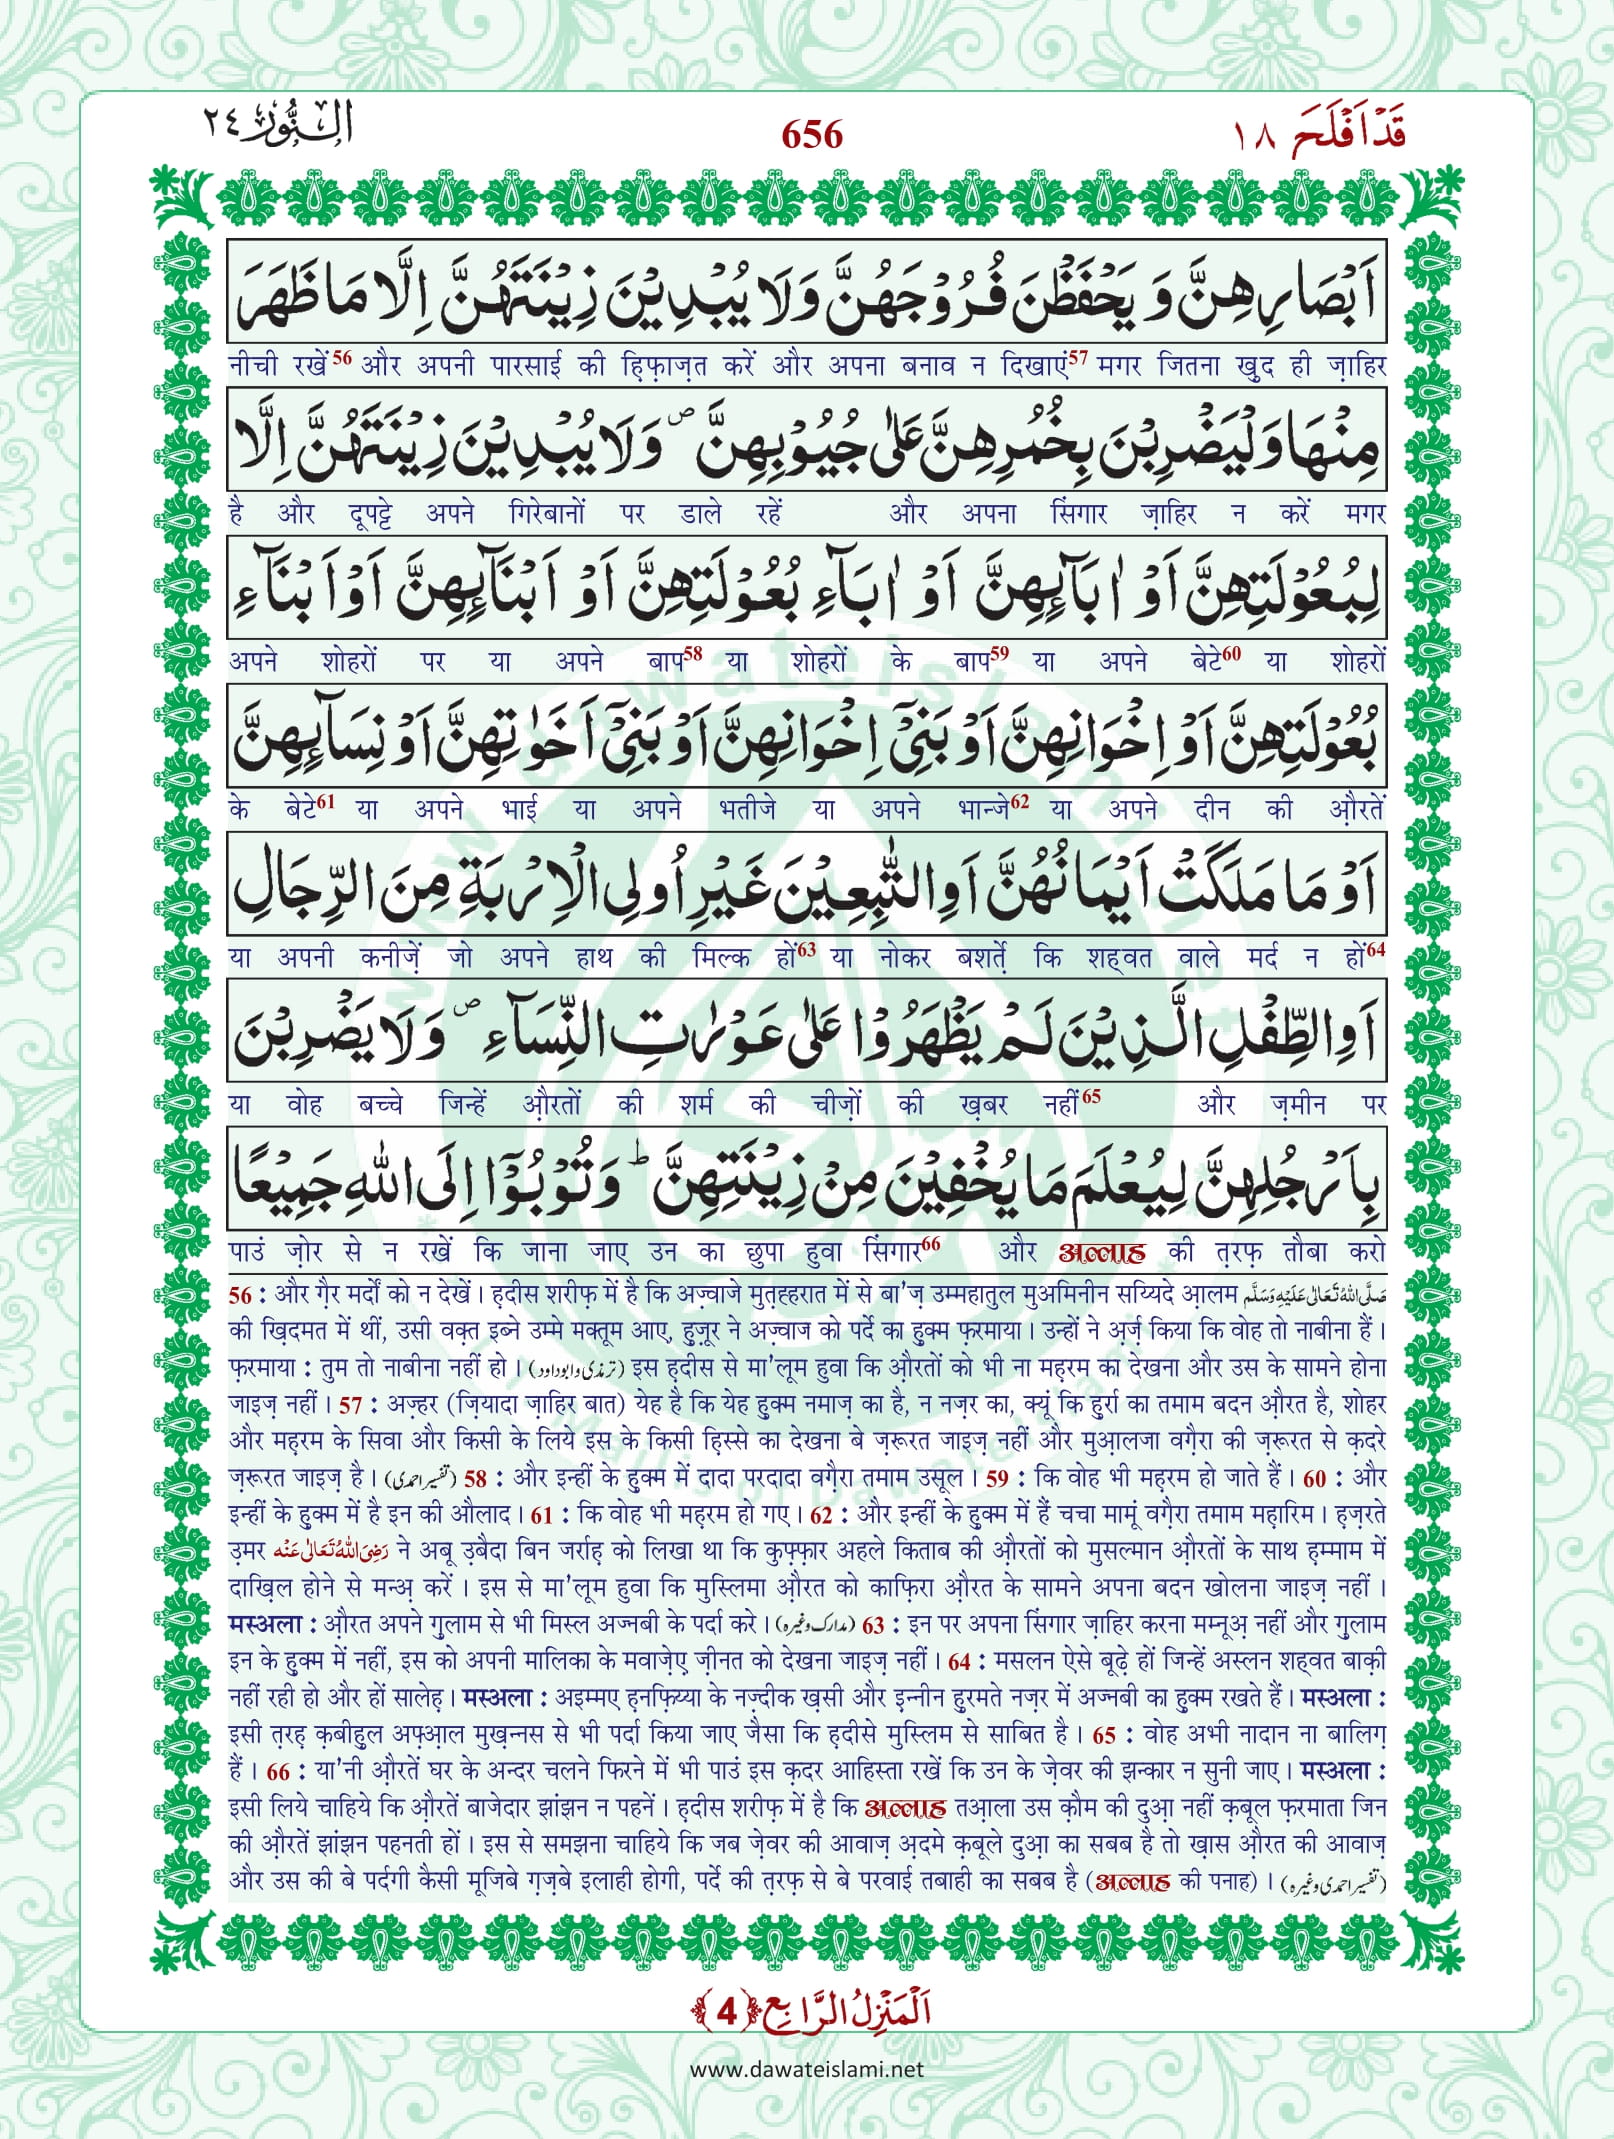 اَلنُّوْر ٢٤
656
قَدْ اَفْلَحَ ١٨
اَبْصَارِهِنَّ وَ یَحْفَظْنَ فُرُوْجَهُنَّ وَلَا یُبْدِیْنَ زِیْنَتَهُنَّ اِلَّا مَا ظَهَرَ
नीची रखें56 और अपनी पारसाई की हि़फ़ाज़त करें और अपना बनाव न दिखाएं57 मगर जितना खु़द ही ज़ाहिर
مِنْهَا وَلْیَضْرِبْنَ بِخُمُرِهِنَّ عَلٰی جُیُوْبِهِنَّ ۪ وَلَا یُبْدِیْنَ زِیْنَتَهُنَّ اِلَّا
है और दूपट्टे अपने गिरेबानों पर डाले रहें और अपना सिंगार ज़ाहिर न करें मगर
لِبُعُوْلَتِهِنَّ اَوْ اٰبَآىِٕهِنَّ اَوْ اٰبَآءِ بُعُوْلَتِهِنَّ اَوْ اَبْنَآىِٕهِنَّ اَوْ اَبْنَآءِ
अपने शोहरों पर या अपने बाप58 या शोहरों के बाप59 या अपने बेटे60 या शोहरों
بُعُوْلَتِهِنَّ اَوْ اِخْوَانِهِنَّ اَوْ بَنِیْۤ اِخْوَانِهِنَّ اَوْ بَنِیْۤ اَخَوٰتِهِنَّ اَوْ نِسَآىِٕهِنَّ
के बेटे61 या अपने भाई या अपने भतीजे या अपने भान्जे62 या अपने दीन की औ़रतें
اَوْ مَا مَلَكَتْ اَیْمَانُهُنَّ اَوِ التّٰبِعِیْنَ غَیْرِ اُولِی الْاِرْبَةِ مِنَ الرِّجَالِ
या अपनी कनीज़ें जो अपने हाथ की मिल्क हों63 या नोकर बशर्ते़ कि शह्वत वाले मर्द न हों64
اَوِ الطِّفْلِ الَّذِیْنَ لَمْ یَظْهَرُوْا عَلٰی عَوْرٰتِ النِّسَآءِ ۪ وَلَا یَضْرِبْنَ
या वोह बच्चे जिन्हें औ़रतों की शर्म की चीज़ों की ख़बर नहीं65 और ज़मीन पर
بِاَرْجُلِهِنَّ لِیُعْلَمَ مَا یُخْفِیْنَ مِنْ زِیْنَتِهِنَّ ؕ وَتُوْبُوْۤا اِلَی اللّٰهِ جَمِیْعًا
पाउं ज़ोर से न रखें कि जाना जाए उन का छुपा हुवा सिंगार66 और अल्लाह की त़रफ़ तौबा करो
56 : और ग़ैर मर्दों को न देखें। ह़दीस शरीफ़ में है कि अज़्वाजे मुत़ह्हरात में से बा'ज़ उम्महातुल मुअमिनीन सय्यिदे आ़लम صَلَّی اللّٰهُ تَعَالٰی عَلَیْهِ وَسَلَّم
की ख़िदमत में थीं, उसी वक़्त इब्ने उम्मे मक्तूम आए, हु़ज़ूर ने अज़्वाज को पर्दे का हु़क्म फ़रमाया। उन्हों ने अ़र्ज़ किया कि वोह तो नाबीना हैं।
फ़रमाया : तुम तो नाबीना नहीं हो। (ترمذی و ابوداود) इस ह़दीस से मा'लूम हुवा कि औ़रतों को भी ना मह़रम का देखना और उस के सामने होना
जाइज़ नहीं। 57 : अज़्हर (ज़ियादा ज़ाहिर बात) येह है कि येह हु़क्म नमाज़ का है, न नज़र का, क्यूं कि हु़र्रा का तमाम बदन औ़रत है, शोहर
और मह़रम के सिवा और किसी के लिये इस के किसी हि़स्से का देखना बे ज़रूरत जाइज़ नहीं और मुआ़लजा वग़ैरा की ज़रूरत से क़दरे
ज़रूरत जाइज़ है। (تفسیر احمدی) 58 : और इन्हीं के हु़क्म में दादा परदादा वग़ैरा तमाम उसूल। 59 : कि वोह भी मह़रम हो जाते हैं। 60 : और
इन्हीं के हु़क्म में है इन की औलाद। 61 : कि वोह भी मह़रम हो गए। 62 : और इन्हीं के हु़क्म में हैं चचा मामूं वग़ैरा तमाम मह़ारिम। ह़ज़रते
उ़मर رَضِیَ اللّٰهُ تَعَالٰی عَنْهُ ने अबू उ़बैदा बिन जर्राह़ को लिखा था कि कुफ़्फ़ार अहले किताब की औ़रतों को मुसल्मान औ़रतों के साथ ह़म्माम में
दाख़िल होने से मन्अ़ करें। इस से मा'लूम हुवा कि मुस्लिमा औ़रत को काफ़िरा औ़रत के सामने अपना बदन खोलना जाइज़ नहीं।
मस्अला : औ़रत अपने गु़लाम से भी मिस्ल अज्नबी के पर्दा करे। (مدارک وغیرہ) 63 : इन पर अपना सिंगार ज़ाहिर करना मम्नूअ़ नहीं और गु़लाम
इन के हु़क्म में नहीं, इस को अपनी मालिका के मवाज़ेए़ ज़ीनत को देखना जाइज़ नहीं। 64 : मसलन ऐसे बूढ़े हों जिन्हें अस्लन शह्वत बाक़ी
नहीं रही हो और हों सालेह़। मस्अला : अइम्मए ह़नफ़िय्या के नज़्दीक ख़सी और इ़न्नीन हु़रमते नज़र में अज्नबी का हु़क्म रखते हैं। मस्अला :
इसी त़रह़ क़बीहु़ल अफ़्आ़ल मुख़न्नस से भी पर्दा किया जाए जैसा कि ह़दीसे मुस्लिम से साबित है। 65 : वोह अभी नादान ना बालिग़
हैं। 66 : या'नी औ़रतें घर के अन्दर चलने फिरने में भी पाउं इस क़दर आहिस्ता रखें कि उन के ज़ेवर की झन्कार न सुनी जाए। मस्अला :
इसी लिये चाहिये कि औ़रतें बाजेदार झांझन न पहनें। ह़दीस शरीफ़ में है कि अल्लाह तआ़ला उस क़ौम की दुआ़ नहीं क़बूल फ़रमाता जिन
की औ़रतें झांझन पहनती हों। इस से समझना चाहिये कि जब ज़ेवर की आवाज़ अ़दमे क़बूले दुआ़ का सबब है तो ख़ास औ़रत की आवाज़
और उस की बे पर्दगी कैसी मूजिबे ग़ज़बे इलाही होगी, पर्दे की त़रफ़ से बे परवाई तबाही का सबब है (अल्लाह की पनाह)। (تفسیر احمدی وغیرہ)
اَلْمَنْزِلُ الرَّابِع ﴿4﴾
www.dawateislami.net